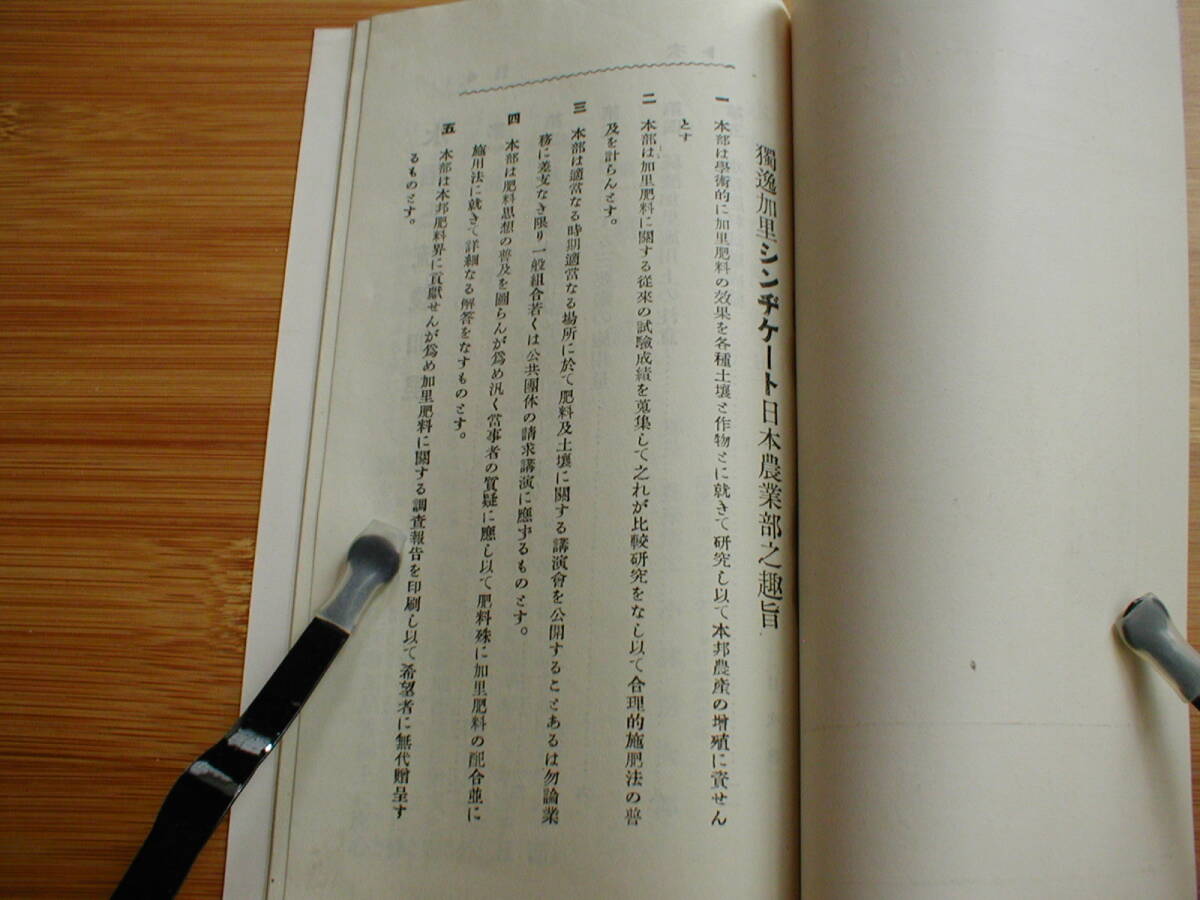 獨逸加里シンヂケート日本農業部之趣旨
一 本部は學術的に加里肥料の效果を各種土壤と作物とに就きて研究し以て本邦農産の增殖に資せん
とす
二 本部は加里肥料に關する從來の試驗成績を蒐集して之れが比較研究をなし以て合理的施肥法の普
及を計らんとす。
三 本部は適當なる時期適當なる場所に於て肥料及土壤に關する講演會を公開することあるは勿論業
務に差支なき限り一般組合若くは公共團体の請求講演に應ずるものとす。
四 本部は肥料思想の普及を圖らんが爲め汎く當事者の質疑に應し以て肥料殊に加里肥料の配合並に
施用法に就きて詳細なる解答をなすものとす。
五 本部は本邦肥料界に貢獻せんが爲め加里肥料に關する調査報告を印刷し以て希望者に無代贈呈す
るものとす。